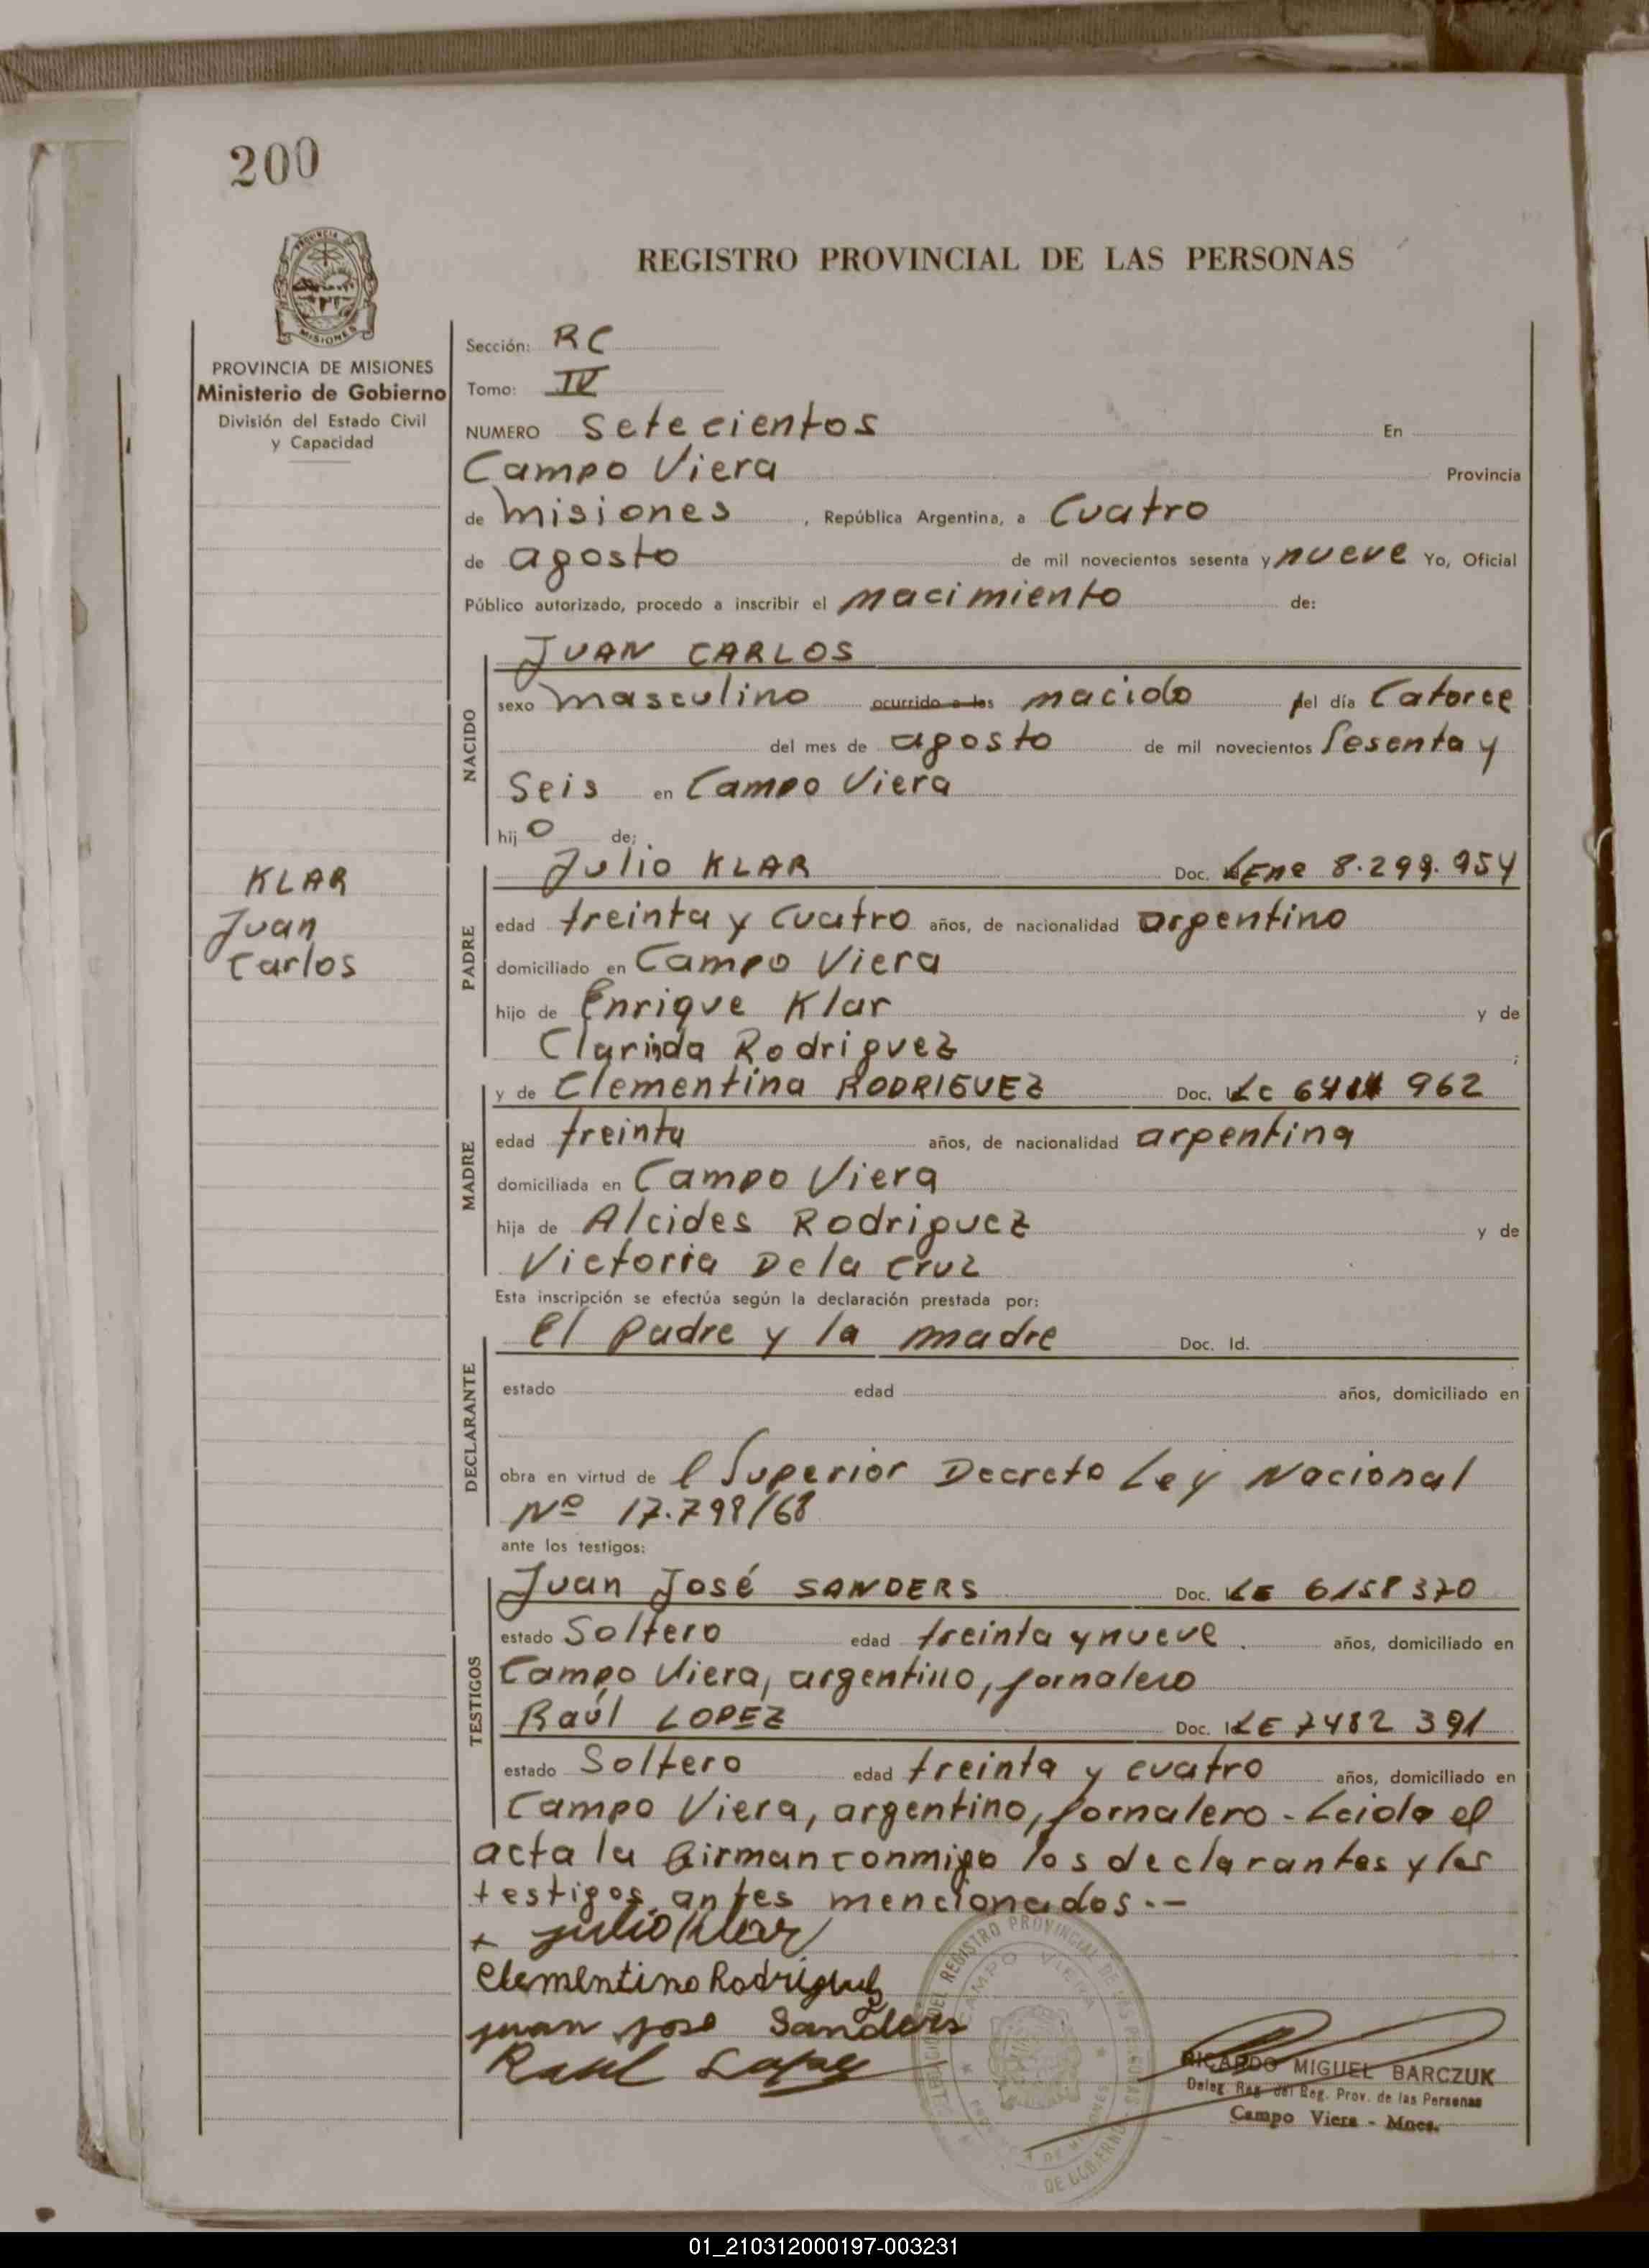 200
REGISTRO PROVINCIAL DE LAS PERSONAS
MISIONES
PROVINCIA DE MISIONES
Ministerio de Gobierno
División del Estado Civil
y Capacidad
Sección: RC
Tomo: IV
NUMERO Setecientos En
Campo Viera Provincia
de misiones, República Argentina, a Cuatro
de agosto de mil novecientos sesenta y nueve Yo, Oficial
Público autorizado, procedo a inscribir el nacimiento de:
NACIDO
JUAN CARLOS
sexo masculino ocurrido a los nacido del día Catorce
del mes de agosto de mil novecientos Sesenta y
Seis en Campo Viera
hijo de:
KLAR
Juan
Carlos
PADRE
Julio KLAR Doc. 8.299.954
edad treinta y cuatro años, de nacionalidad argentino
domiciliado en Campo Viera
hijo de Enrique Klar y de
Clarinda Rodriguez ;
MADRE
y de Clementina RODRIGUEZ Doc. LC 962
edad treinta años, de nacionalidad argentina
domiciliada en Campo Viera
hija de Alcides Rodriguez y de
Victoria De la Cruz
Esta inscripción se efectúa según la declaración prestada por:
DECLARANTE
El padre y la madre Doc. Id.
estado edad años, domiciliado en
obra en virtud de l Superior Decreto Ley Nacional
Nº 17.798/68
ante los testigos:
TESTIGOS
Juan José SANDERS Doc. LE 6158370
estado Soltero edad treinta y nueve años, domiciliado en
Campo Viera, argentino, jornalero
Raúl LOPEZ Doc. LE 7482 391
estado Soltero edad treinta y cuatro años, domiciliado en
Campo Viera, argentino, jornalero - Leido el
acta la firman conmigo los declarantes y los
testigos antes mencionados.-
+ julio Klar
Clementina Rodriguez
juan jose Sanders
Raul Lopez
REGISTRO PROVINCIAL DE LAS PERSONAS
CAMPO VIERA
RICARDO MIGUEL BARCZUK
Deleg. Reg. del Reg. Prov. de las Personas
Campo Viera - Mnes.
01_210312000197-003231